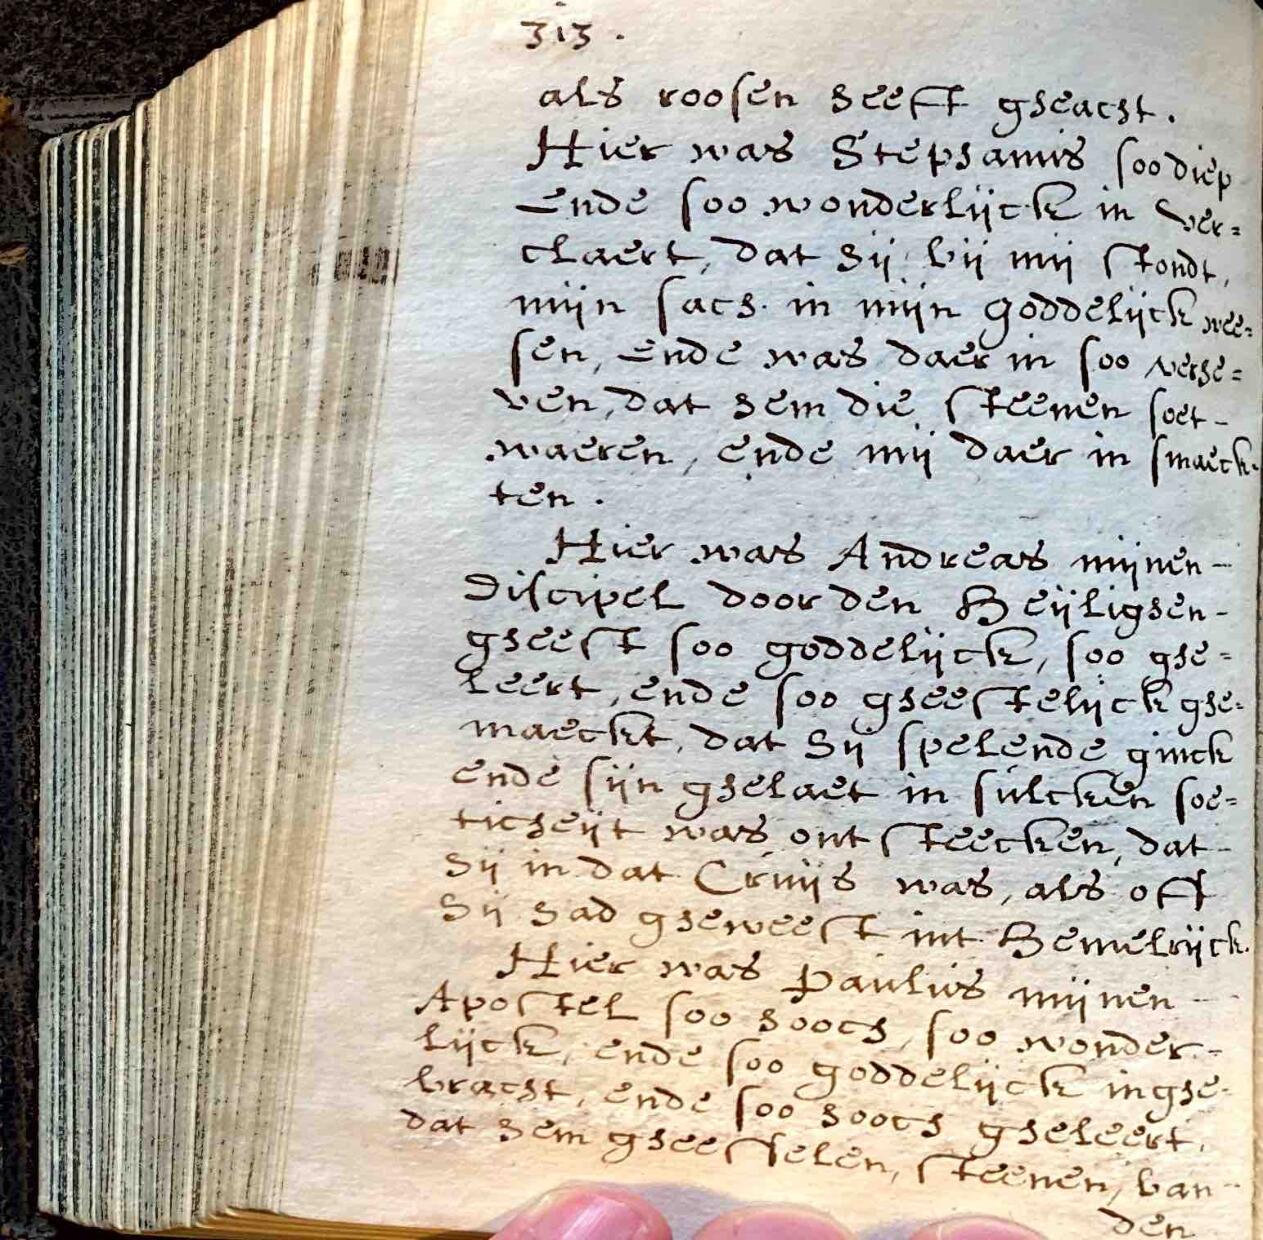 313.
als roosen heeft gheacht.
Hier was Stephanus soo diep
Ende soo wonderlijck in ver=
claert, dat hij bij mij stondt,
mijn sach in mijn goddelijck wee=
sen, ende was daer in soo verhe=
ven, dat hem die steenen soet-
waeren, ende mij daer in smaeck-
ten.
Hier was Andreas mijnen-
Discipel door den Heijlighen-
gheest soo goddelijck, soo ghe=
leert, ende soo gheestelijck ghe=
maeckt, dat hij spelende ginck
ende sijn ghelaet in sulcken soe=
ticheijt was ontsteecken, dat-
hij in dat Cruijs was, als oft
hij had gheweest int Hemelrijck.
Hier was Paulus mijnen-
Apostel soo hooch, soo wonder-
lijck, ende soo goddelijck inghe-
bracht, ende soo hooch gheleert,
dat hem gheestelen, steenen, ban-
den